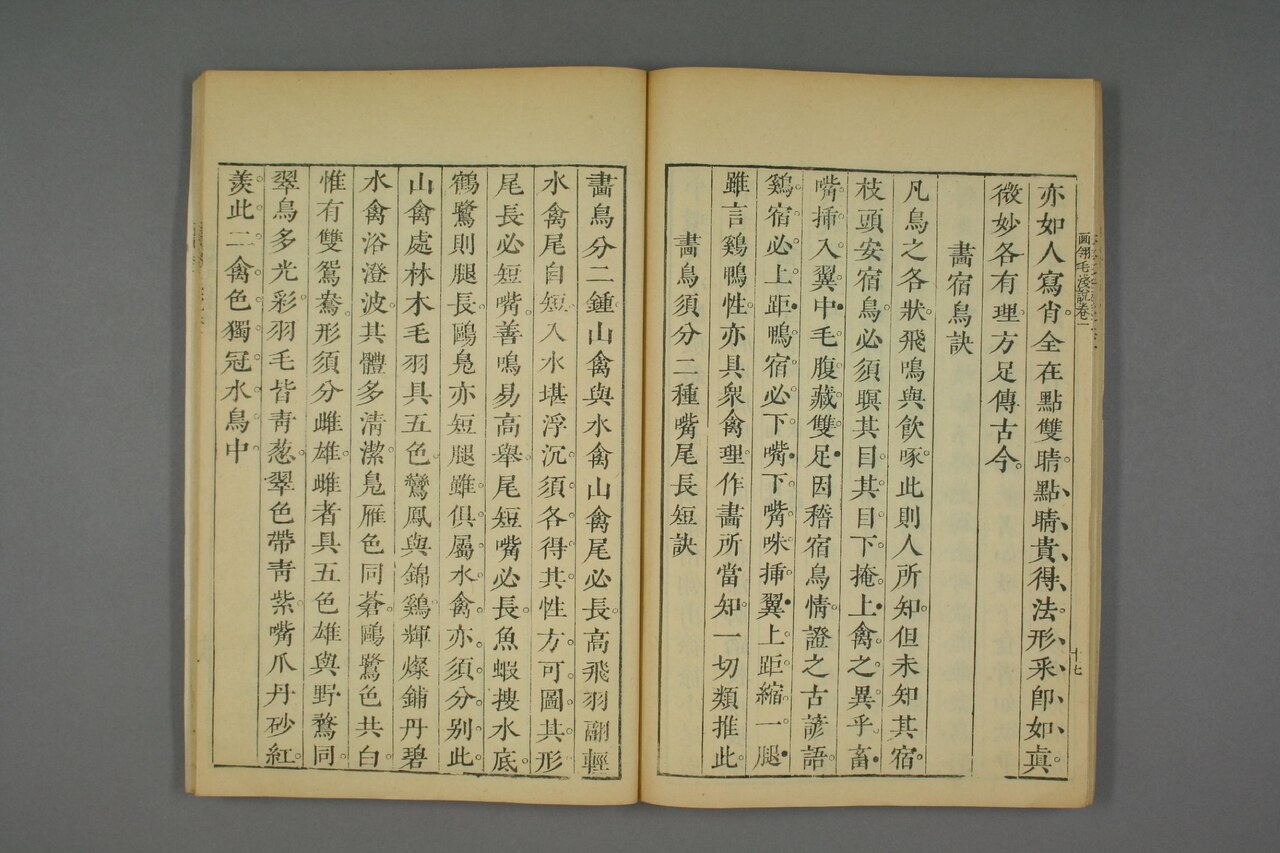 亦如人寫肖全在點雙睛點睛貴得法形采卽如真
微妙各有理方足傳古今
畵宿鳥訣
凡鳥之各狀飛鳴與飲啄此則人所知但未知其宿
枝頭安宿鳥必須瞑其目其目下掩上禽之異乎畜
嘴揷入翼中毛腹藏雙足因稽宿鳥情證之古諺語
鷄宿必上距鴨宿必下嘴下嘴咮揷翼上距縮一腿
雖言鷄鴨性亦具衆禽理作畵所當知一切類推此
畵鳥須分二種嘴尾長短訣
畵鳥分二鍾山禽與水禽山禽尾必長高飛羽翮輕
水禽尾自短入水堪浮沉須各得其性方可圖其形
尾長必短嘴善鳴易高舉尾短嘴必長魚蝦搜水底
鶴鷺則腿長鷗鳧亦短腿雖俱屬水禽亦須分别此
山禽處林木毛羽具五色鸞鳳與錦鷄輝燦鋪丹碧
水禽浴澄波其體多清潔鳧雁色同蒼鷗鷺色共白
惟有雙鴛鴦形須分雌雄雌者具五色雄與野鶩同
翠鳥多光彩羽毛皆靑葱翠色帶靑紫嘴爪丹砂紅
羡此二禽色獨冠水鳥中
画翎毛淺說卷一
十七